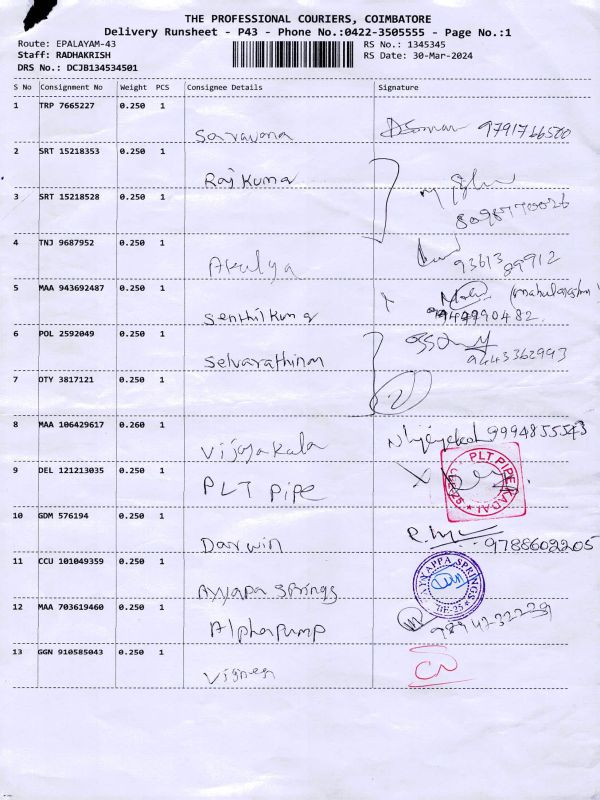 THE PROFESSIONAL COURIERS, COIMBATORE
Delivery Runsheet - P43 - Phone No.:0422-3505555 - Page No.:1
Route: EPALAYAM-43 RS No.: 1345345
Staff: RADHAKRISH RS Date: 30-Mar-2024
DRS No.: DCJB134534501
S No Consignment No Weight PCS Consignee Details Signature
1 TRP 7665227 0.250 1
Saravana 9791766500
2 SRT 15218353 0.250 1
Raj Kumar
3 SRT 15218528 0.250 1
8098770026
4 TNJ 9687952 0.250 1
Akalya 9361389912
5 MAA 943692487 0.250 1
Senthilkumar
6 POL 2592049 0.250 1
Selvarathinam 9443362993
7 OTY 3817121 0.250 1
2
8 MAA 106429617 0.260 1
Vijayakala 9994855543
9 DEL 121213035 0.250 1
PLT PIPE
PLT PIPE KADAI
10 GDM 576194 0.250 1
Darwin 9788602205
11 CCU 101049359 0.250 1
Ayyapa Springs
AYYAPPA SPRINGS
12 MAA 703619460 0.250 1
Alphapump 9894232239
13 GGN 910585043 0.250 1
Vignesh